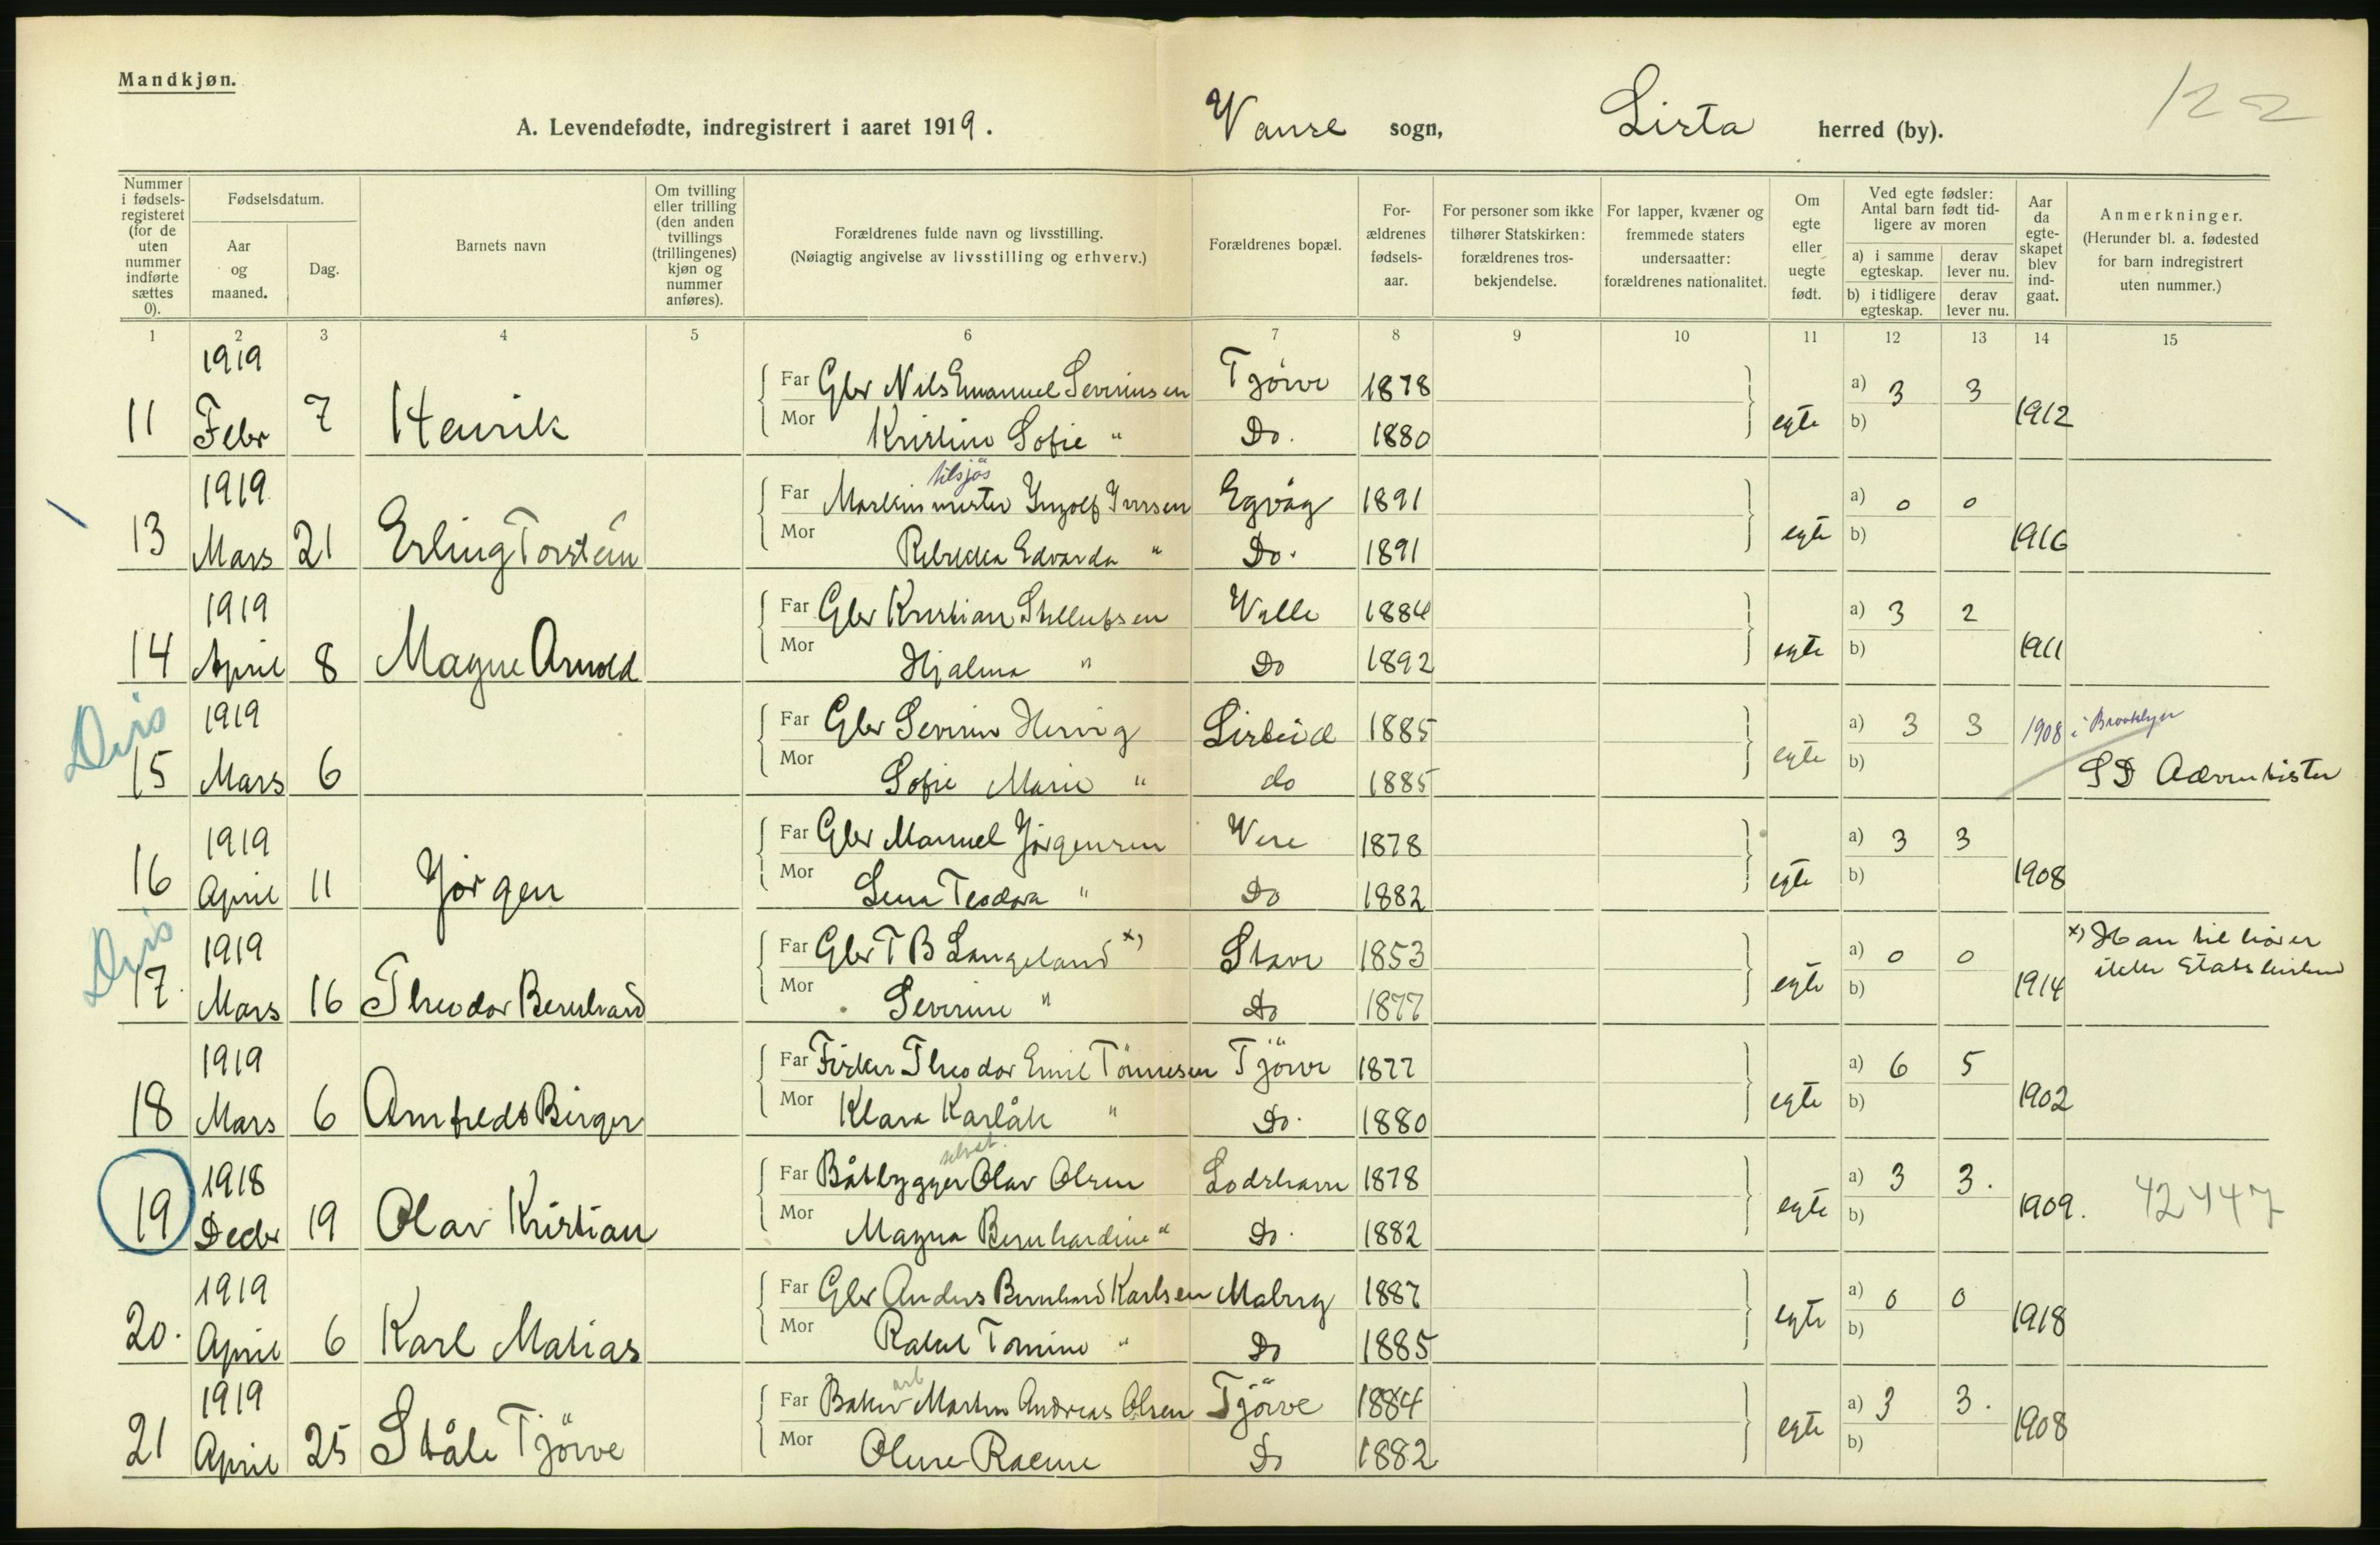 Mandkjøn.
122
A. Levendefødte, indregistrert i aaret 1919. Vanse sogn, Lista herred (by).
Nummer i fødsels-registeret (for de uten nummer indførte sættes 0).
Fødselsdatum.
Aar og maaned.
Dag.
Barnets navn
Om tvilling eller trilling (den anden tvillings (trillingenes) kjøn og nummer anføres).
Forældrenes fulde navn og livsstilling.
(Nøiagtig angivelse av livsstilling og erhverv.)
Forældrenes bopæl.
For-ældrenes fødsels-aar.
For personer som ikke tilhører Statskirken: forældrenes tros-bekjendelse.
For lapper, kvæner og fremmede staters undersaatter: forældrenes nationalitet.
Om egte eller uegte født.
Ved egte fødsler: Antal barn født tid-ligere av moren
a) i samme egteskap.
derav lever nu.
b) i tidligere egteskap.
derav lever nu.
Aar da egte-skapet blev ind-gaat.
Anmerkninger.
(Herunder bl. a. fødested for barn indregistrert uten nummer.)
1 2 3 4 5 6 7 8 9 10 11 12 13 14 15
1919 Far Gbr Nils Emanuel Severinsen Tjörve 1878 a) 3 3
11 Febr 7 Henrik Mor Kristine Sofie " Do. 1880 egte b) 1912
tilsjös
1919 Far Maskinmester Ingolf Iversen Egvåg 1891 a) 0 0
13 Mars 21 Erling Torstein Mor Rebekka Edvarda " Do. 1891 egte b) 1916
1919 Far Gbr Kristian Stellufsen Velle 1884 a) 3 2
14 April 8 Magne Arnold Mor Hjalma " Do 1892 egte b) 1911
Dis
1919 Far Gbr Severin Hervig Listeid 1885 a) 3 3 1908 i Brooklyn
15 Mars 6 Mor Sofie Marie " do 1885 egte b) SD Adventister
1919 Far Gbr Manuel Jörgensen Vere 1878 a) 3 3
16 April 11 Jörgen Mor Lena Teodora " Do 1882 egte b) 1908
Dis
1919 Far Gbr T B Langeland x) Stave 1853 a) 0 0 x) Han tilhörer
17. Mars 16 Theodor Bernhard Mor Severine " Do 1877 egte b) 1914 ikke Statskirken
1919 Far Fisker Theodor Emil Tönnesen Tjörve 1877 a) 6 5
18 Mars 6 Arnfeldt Birger Mor Klara " Do. 1880 egte b) 1902
selvst.
1918 Far Båtbygger Olav Olsen Lodshavn 1878 a) 3 3.
19 Decbr 19 Olav Kristian Mor Magna Bernhardine " Do. 1882 egte b) 1909. 42447
1919 Far Gbr Anders Bernhard Karlsen Maberg 1887 a) 0 0
20. April 6 Karl Matias Mor Rakel Tomine " Do 1885 egte b) 1918
arb
1919 Far Baker Martin Andreas Olsen Tjörve 1884 a) 3 3.
21 April 25 Ståle Tjörve Mor Oline Do 1882 egte b) 1908